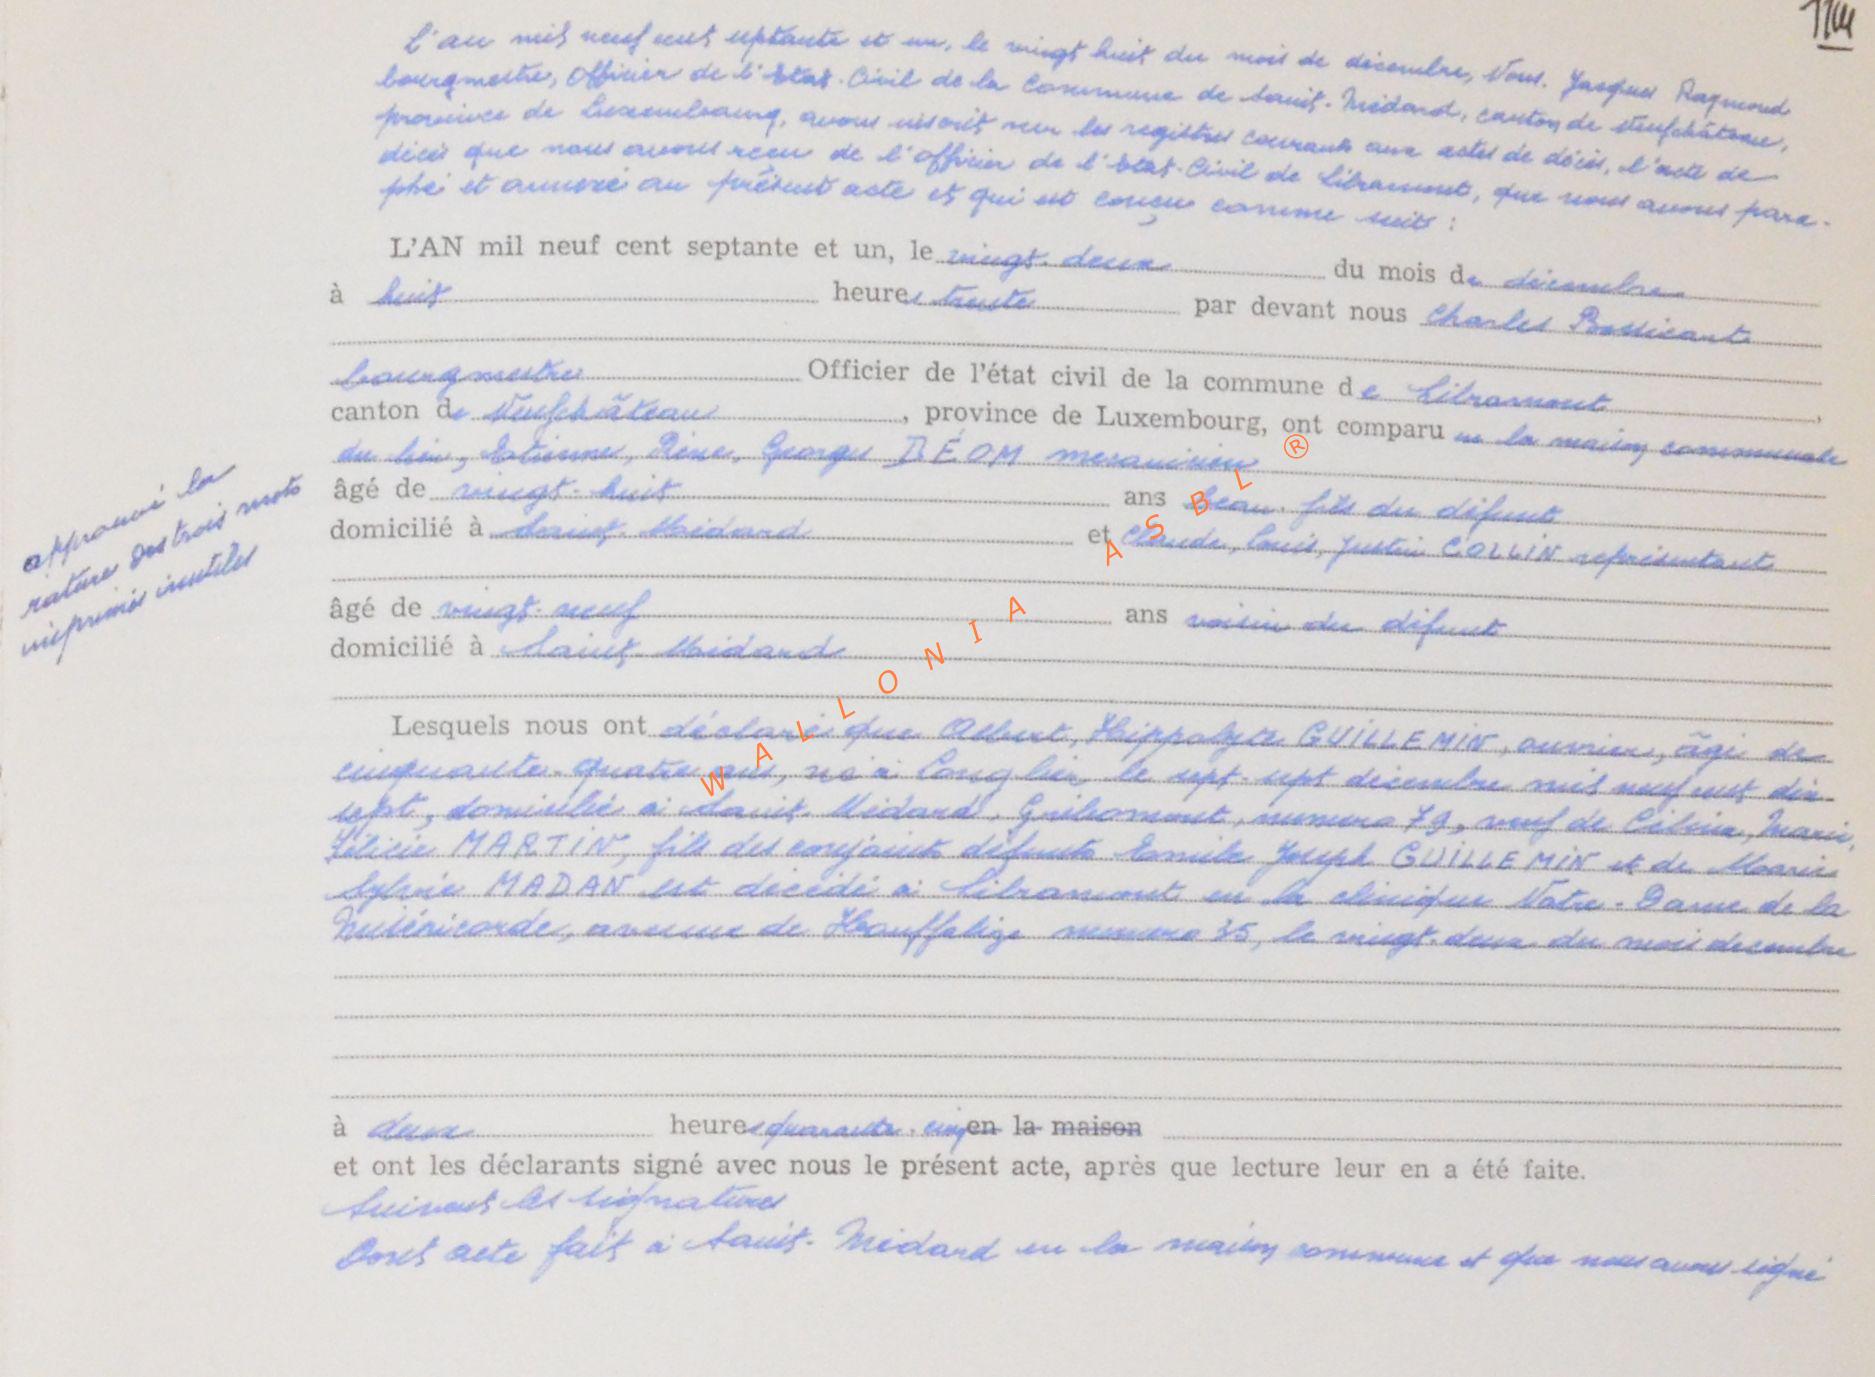 L'an mil neuf cent septante et un, le vingt huit du mois de décembre, Nous. Jacques Raymond
bourgmestre, Officier de l'Etat-Civil de la Commune de Saint-Médard, canton de Neufchâteau,
province de Luxembourg, avons inscrit sur les registres courants aux actes de décès, l'acte de
décès que nous avons reçu de l'officier de l'Etat-Civil de Libramont, que nous avons para-
phé et annexé au présent acte et qui est conçu comme suit :
L'AN mil neuf cent septante et un, le vingt-deux du mois de décembre
à huit heures trente par devant nous Charles
bourgmestre Officier de l'état civil de la commune de Libramont,
canton de Neufchâteau, province de Luxembourg, ont comparu en la maison communale
du lieu, Etienne, René, Georges DÉOM mécanicien
âgé de vingt-huit ans beau-fils du défunt
domicilié à Saint-Médard et Claude, Louis, Justin COLLIN représentant
approuvé la
rature des trois mots
imprimés inutiles
âgé de vingt-neuf ans voisin du défunt
domicilié à Saint-Médard
Lesquels nous ont déclaré que Albert, Hippolyte GUILLEMIN, ouvrier, âgé de
cinquante-quatre ans, né à Longlier, le sept-sept décembre mil neuf cent dix-
sept, domicilié à Saint-Médard, Gribomont, numéro 79, veuf de Marie,
Félicie MARTIN, fils des conjoints défunts Emile Joseph GUILLEMIN et de Marie
Sylvie MADAN est décédé à Libramont en la clinique Notre-Dame de la
Miséricorde, avenue de Houffalize numéro 35, le vingt-deux du mois decembre
à deux heures quarante-cinq en la maison
et ont les déclarants signé avec nous le présent acte, après que lecture leur en a été faite.
Suivent les signatures
Dont acte fait à Saint-Médard en la maison commune et que nous avons signé
WALLONIA ASBL ®